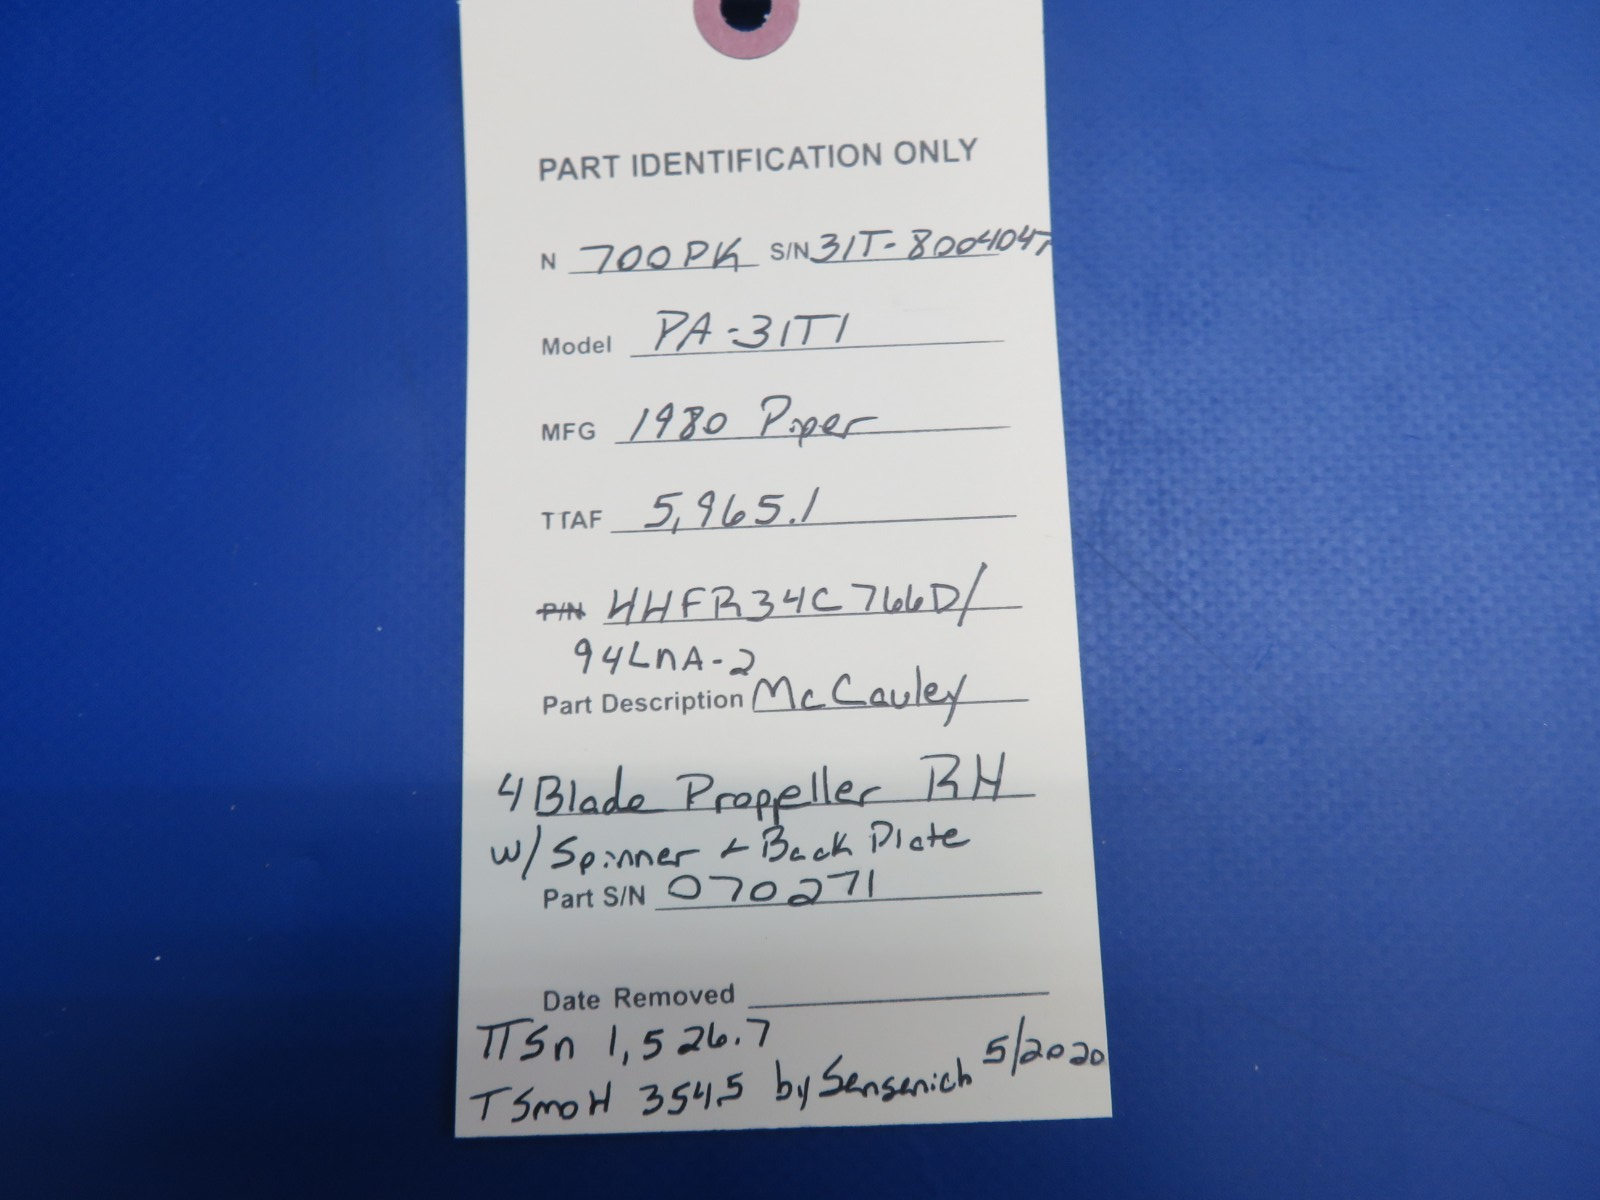 PART IDENTIFICATION ONLY
N 700PK S/N 31T-8004047
Model PA-31T1
MFG 1980 Piper
TTAF 5,965.1
P/N 4HFR34C766D/
94LnA-2
Part Description McCauley
4 Blade Propeller RH
w/ Spinner + Back Plate
Part S/N 070271
Date Removed
TTSn 1,526.7
TSmoH 354.5 by Sensenich 5/2020